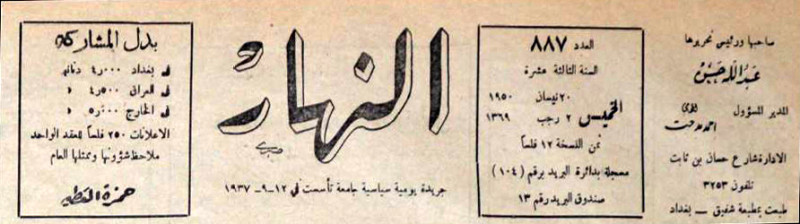 صاحبها ورئيس تحريرها
عبدالله حسن
المدير المسؤول
احمد مدحت
الادارة شارع حسان بن ثابت
تلفون ٣٢٥٣
طبعت بمطبعة شفيق — بغداد
العدد ٨٨٧
السنة الثالثة عشرة
الخميس
٢٠ نيسان ١٩٥٠
٢ رجب ١٣٦٩
ثمن النسخة ١٢ فلساً
مسجلة بدائرة البريد برقم (١٠٤)
صندوق البريد رقم ١٣
النهار
صبري
جريدة يومية سياسية جامعة تأسست في ١٢-٩-١٩٣٧
بدل المشاركة
في بغداد ٤٫٠٠٠ دنانير
في العراق ٤٫٥٠٠ »
في الخارج ٥٫٠٠٠ »
الاعلانات ٢٥٠ فلساً للعقد الواحد
ملاحظ شؤونها وممثلها العام
حمزة